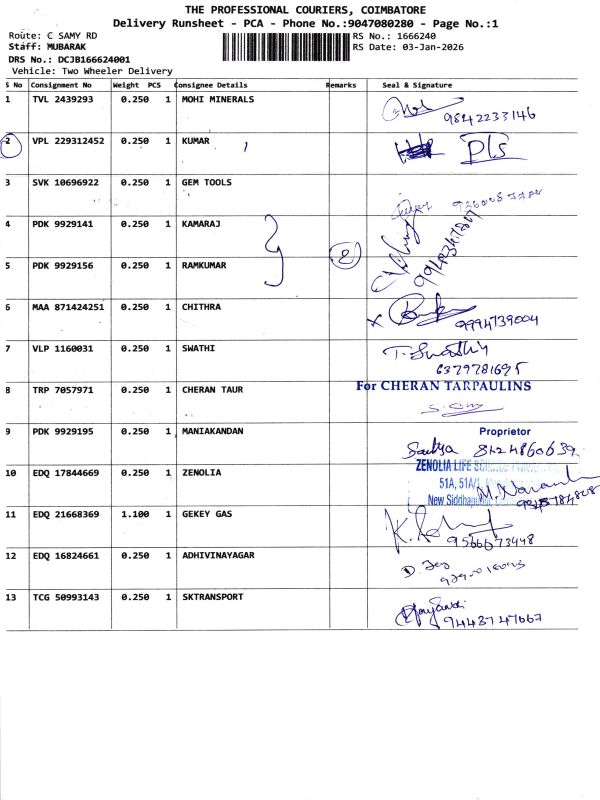 THE PROFESSIONAL COURIERS, COIMBATORE
Delivery Runsheet - PCA - Phone No.:9047080280 - Page No.:1
Route: C SAMY RD
RS No.: 1666240
Staff: MUBARAK
RS Date: 03-Jan-2026
DRS No.: DCJB166624001
Vehicle: Two Wheeler Delivery
S No Consignment No Weight PCS Consignee Details Remarks Seal & Signature
1 TVL 2439293 0.250 1 MOHI MINERALS
9842233146
2 VPL 229312452 0.250 1 KUMAR Pls
3 SVK 10696922 0.250 1 GEM TOOLS
4 PDK 9929141 0.250 1 KAMARAJ
2
5 PDK 9929156 0.250 1 RAMKUMAR
6 MAA 871424251 0.250 1 CHITHRA
9994739004
7 VLP 1160031 0.250 1 SWATHI T. Swathi
6379781695
8 TRP 7057971 0.250 1 CHERAN TAUR For CHERAN TARPAULINS
Proprietor
9 PDK 9929195 0.250 1 MANIAKANDAN
8124860639
10 EDQ 17844669 0.250 1 ZENOLIA ZENOLIA LIFE
51A, 51A/1
New
11 EDQ 21668369 1.100 1 GEKEY GAS
9566673448
12 EDQ 16824661 0.250 1 ADHIVINAYAGAR
13 TCG 50993143 0.250 1 SKTRANSPORT
9443747667